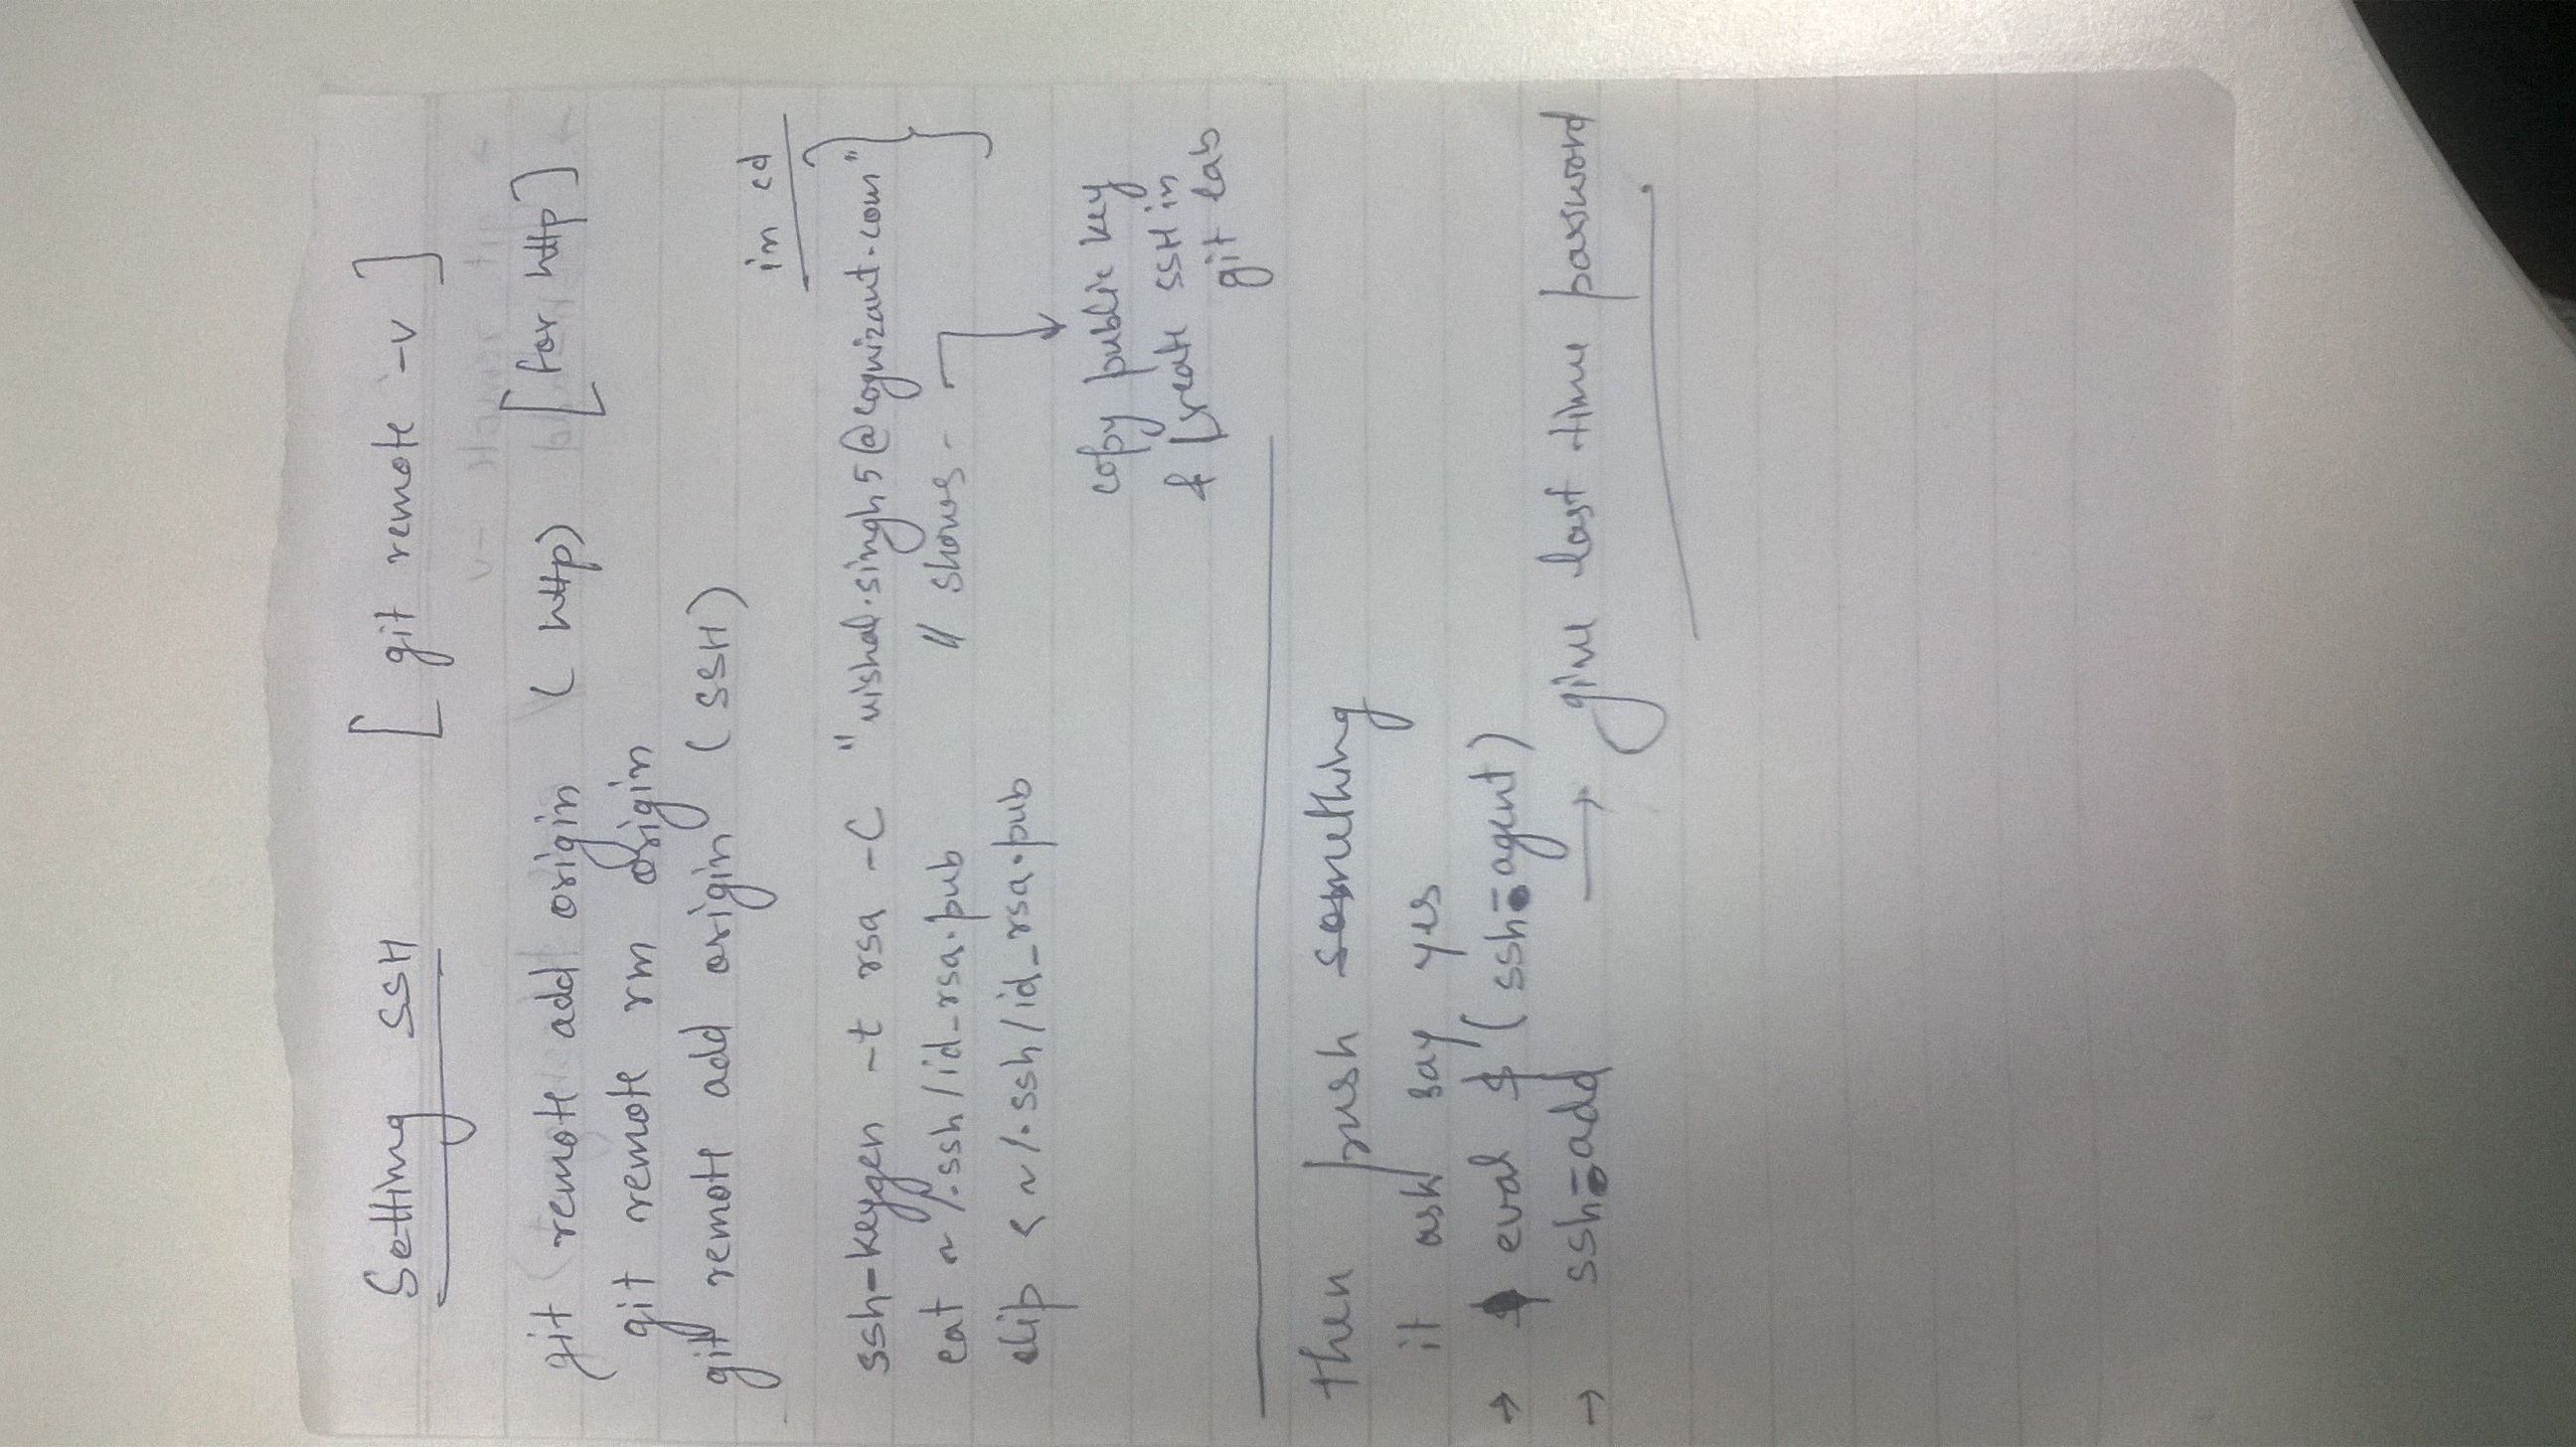 Setting SSH [ git remote -v ]
git remote add origin ( http) [for http]
git remote rm origin
git remote add origin (SSH)
in cd
ssh-keygen -t rsa -C "vishal.singh5@cognizant.com"
cat ~/.ssh/id_rsa.pub // shows -
clip < ~/.ssh/id_rsa.pub
copy public key
& create SSH in
git lab
then push something
it ask say yes
→ $ eval $(ssh-agent)
→ ssh-add → give last time password